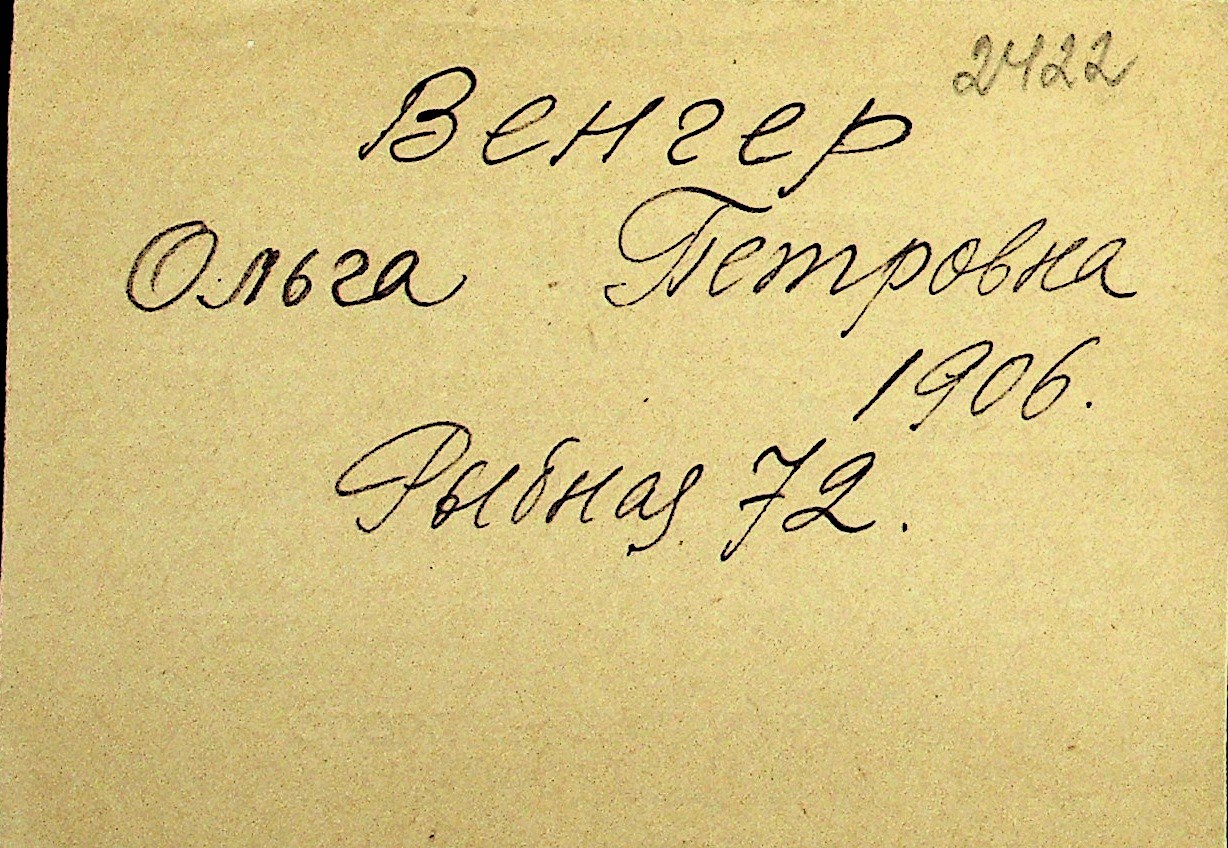 2422
Венгер
Ольга Петровна
1906.
Рыбная 72.